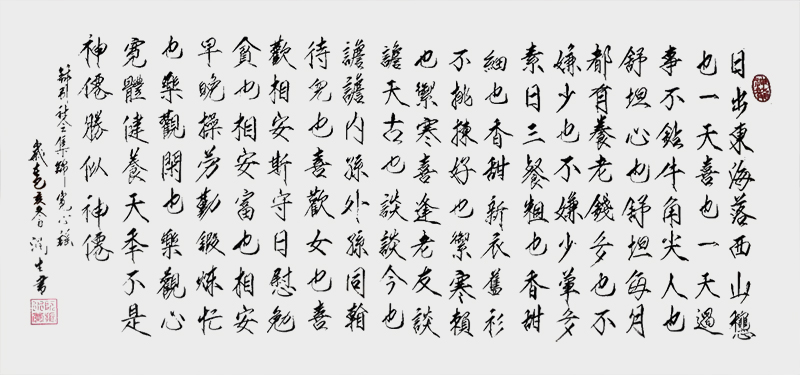 日出東海落西山愁
也一天喜也一天遇
事不鉆牛角尖人也
舒坦心也舒坦每月
都有養老錢多也不
嫌少也不嫌少葷多
素日三餐粗也香甜
細也香甜新衣舊衫
不挑揀好也禦寒賴
也禦寒喜逢老友談
談天古也談談今也
談談内孫外孫同
待兒也喜歡女也喜
歡相安斯守日慰勉
貧也相安富也相安
早晚操勞勤鍛煉忙
也樂觀閑也樂觀心
寬體健養天年不是
神僊勝似神僊
集錦寬心謠
歲書